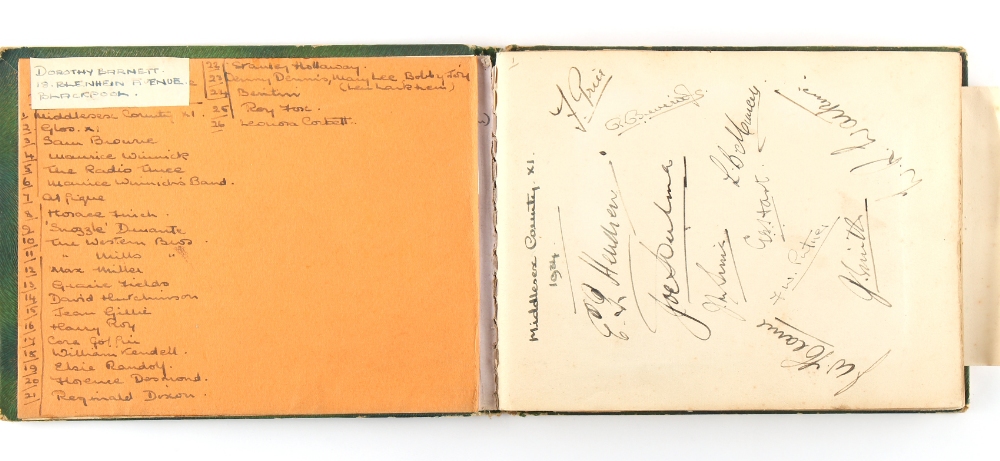 DOROTHY BARNETT.
18. BLENHEIM AVENUE.
BLACKPOOL.
1 Middlesex County XI.
2 Glos. XI
3 Sam Browne
4 Maurice Winnick
5 The Radio Three
6 Maurice Winnick's Band.
7 Al
8 Horace Finch.
9 'Snozzle' Durante
10 The Western Bros.
11 " Mills "
12 Max Miller
13 Gracie Fields
14 David Hutchinson
15 Jean Gillie
16 Harry Roy
17 Cora
18 William Kendell.
19 Elsie Randolf.
20 Florence Desmond.
21 Reginald Dixon.
22 Stanley Holloway.
23 Denny Dennis, Mary Lee Bobby Joy
24 Benton
25 Roy Fox.
26 Leonora Corbett.
Middlesex County. XI.
1934
F. Price
E. Hendren
Joe Hulme
J. Sims
G. E. Hart
F. W. Putner
J. Smith
J. W. Hearne